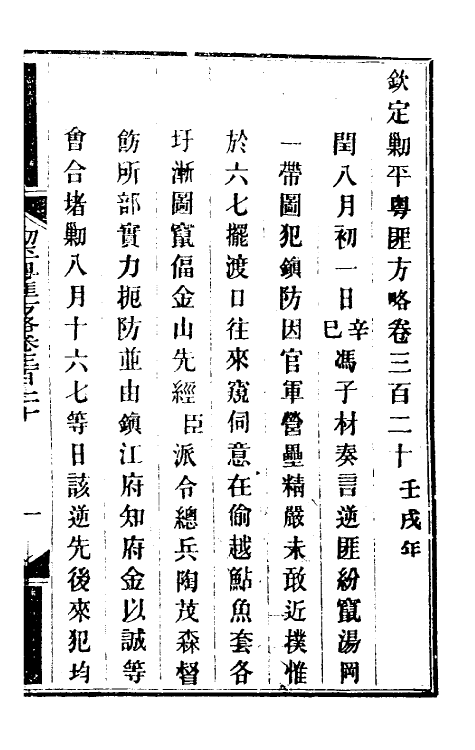 欽定剿平粵匪方略卷三百二十 壬戌年
閏八月初一日辛巳馮子材奏言逆匪紛竄湯岡
一帶圖犯鎮防因官軍營壘精嚴未敢近撲惟
於六七擺渡口往來窺伺意在偷越鮎魚套各
圩漸圖竄偪金山先經臣派令總兵陶茂森督
飭所部實力扼防並由鎮江府知府金以誠等
會合堵剿八月十六七等日該逆先後來犯均
剿平粵匪方略卷三百二十
一